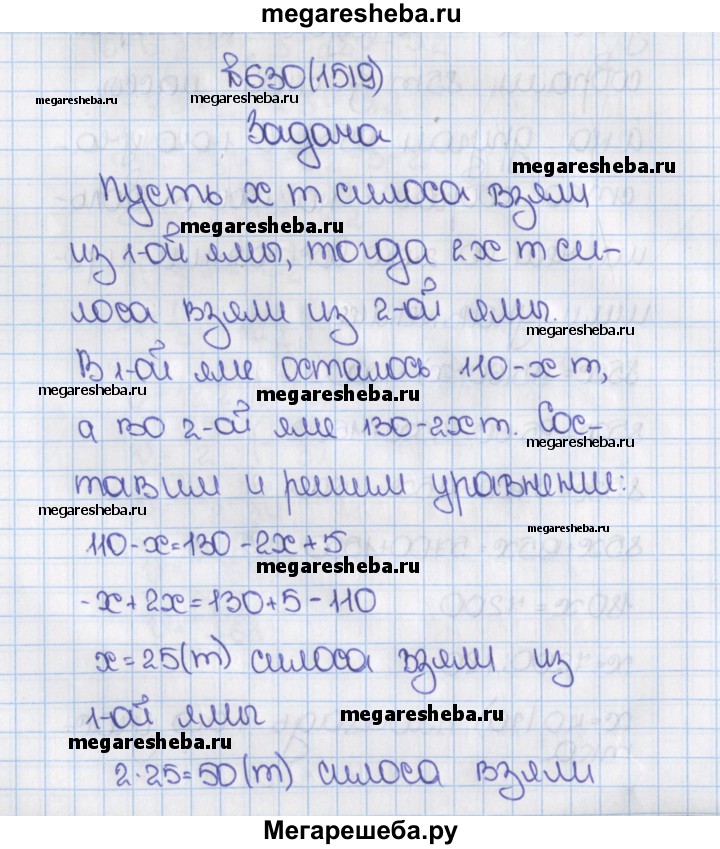 megaresheba.ru
№630(1519)
megaresheba.ru megaresheba.ru
Задача
megaresheba.ru
Пусть x т силоса взяли
megaresheba.ru
из 1-ой ямы, тогда 2x т си-
лоса взяли из 2-ой ямы.
megaresheba.ru
В 1-ой яме осталось 110-x т,
megaresheba.ru megaresheba.ru
а во 2-ой яме 130-2x т. Сос-
megaresheba.ru
тавим и решим уравнение:
megaresheba.ru megaresheba.ru
110-x=130-2x+5
megaresheba.ru
-x+2x=130+5-110
x=25(т) силоса взяли из
1-ой ямы megaresheba.ru
megaresheba.ru
2·25=50(т) силоса взяли
Мегарешеба.ру